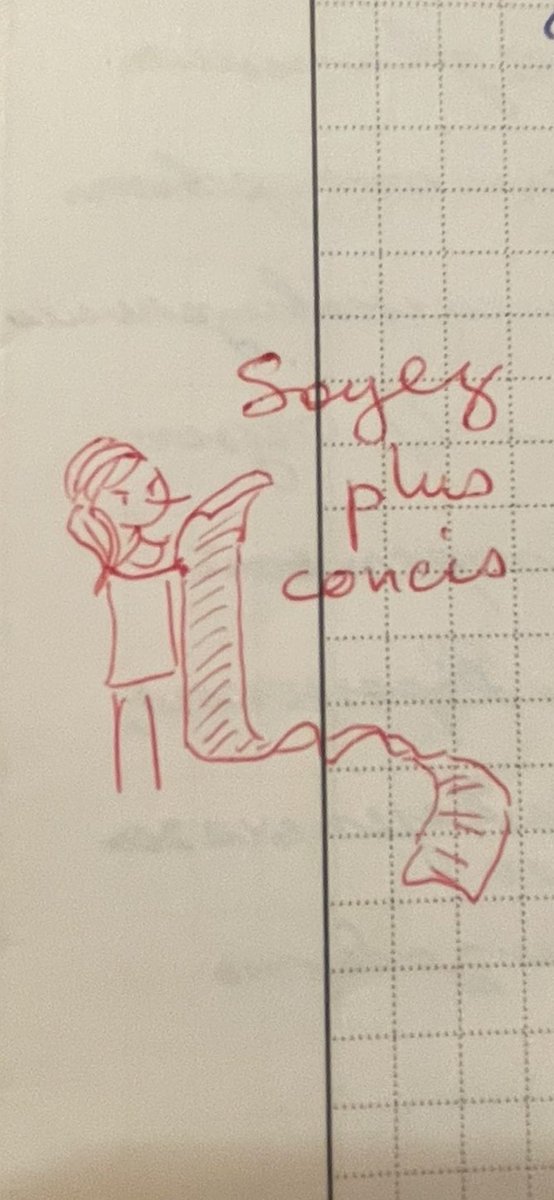 Soyez
plus
concis